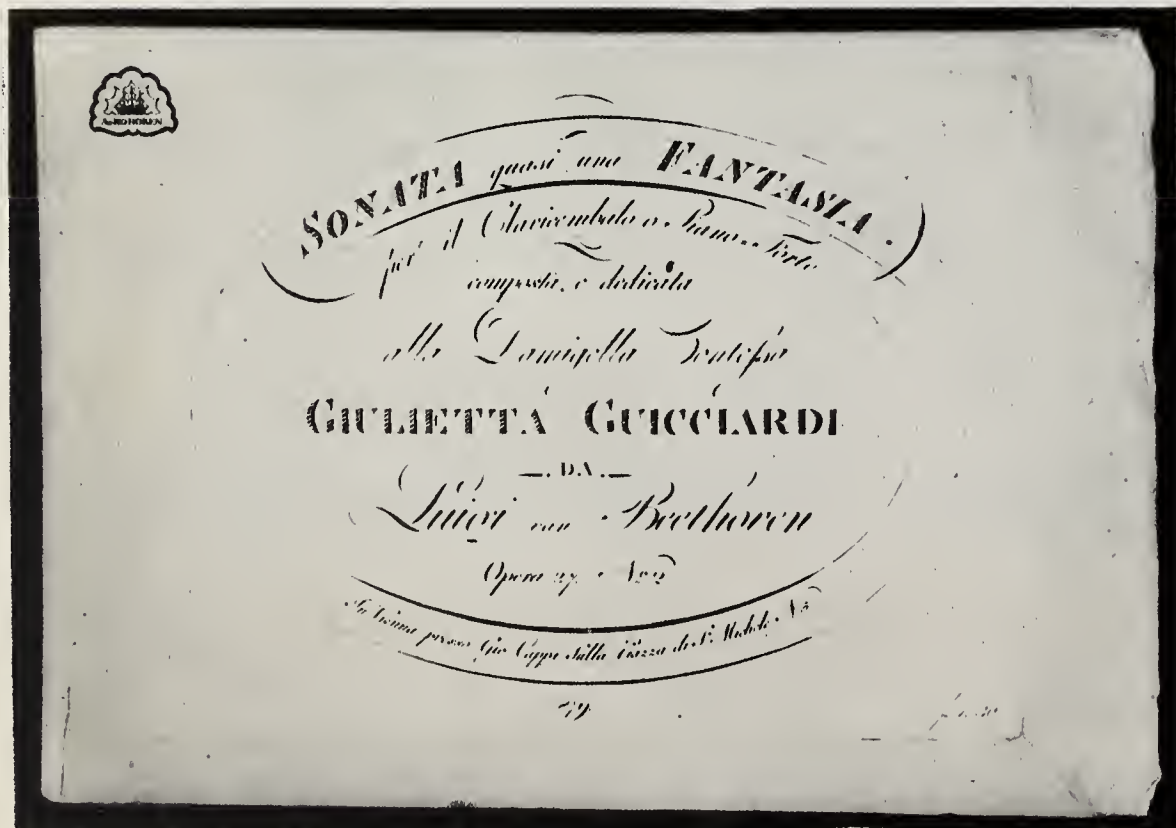 SONATA quasi una FANTASIA.
per il Clavicembalo o Piano-Forte
composta, e dedicata
alla Damigella Contessa
GIULIETTA GUICCIARDI
DA
Luigi van Beethoven
Opera 27. No 2
In Vienna presso Gio. Cappi Sulla Piazza di St. Michele No 5